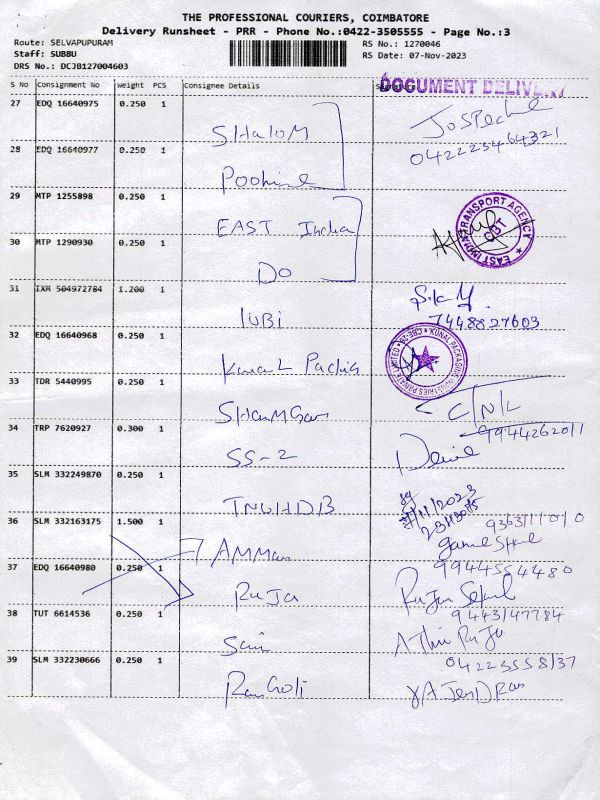 THE PROFESSIONAL COURIERS, COIMBATORE
Delivery Runsheet - PRR - Phone No.:0422-3505555 - Page No.:3
Route: SELVAPUPURAM
Staff: SUBBU
DRS No.: DCJB127004603
RS No.: 1270046
RS Date: 07-Nov-2023
DOCUMENT DELIVERY
S No Consignment No Weight PCS Consignee Details
27 EDQ 16640975 0.250 1
Shalom
28 EDQ 16640977 0.250 1
04222346 4321
29 MTP 1255898 0.250 1
EAST India
EAST INDIA TRANSPORT AGENCY
CBT
30 MTP 1290930 0.250 1
DO
31 IXM 504972784 1.200 1
IUBI
7448827603
32 EDQ 16640968 0.250 1
KUNAL PACKAGING INDUSTRIES PRIVATE LIMITED
CBE-26
33 TDR 5440995 0.250 1
C/N/L
9944262011
34 TRP 7620927 0.300 1
SS-2
35 SLM 332249870 0.250 1
TNUHDB
7/11/2023
36 SLM 332163175 1.500 1
AMMan
9363111010
37 EDQ 16640980 0.250 1
RaJa
9944554480
38 TUT 6614536 0.250 1
Sai
9443147784
39 SLM 332230666 0.250 1
RanGoli
04223558137